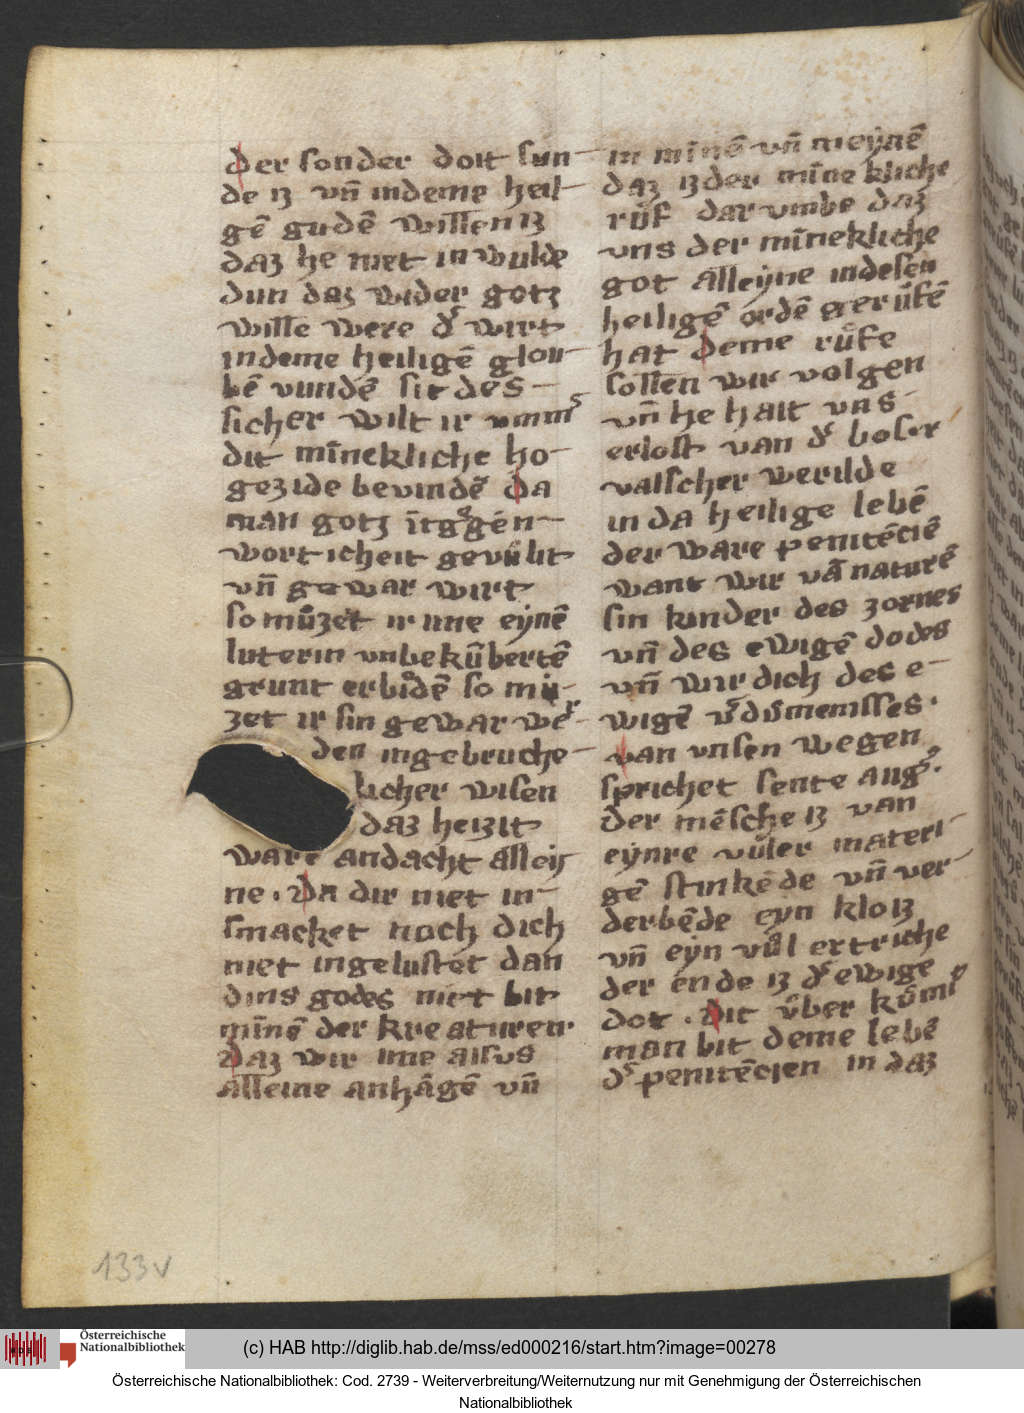 der sonder doit sun-
de iz vn̄ indeme heil-
gē gudē willen iz
daz he niet in wulde
dun daz wider gotz
wille were dʾ wirt
indeme heiligē glou-
bē vundē sit des-
sicher wilt ir ummʾ
dit mīnekliche ho-
gezide bevindē da
man gotz ītgʾgēn-
worticheit gevůlit
vn̄ gewar wirt
so můzet ir ůne eynē
luterin unbekūbertē
grunt erbīdē so mů-
zet ir sin gewar wer-
den ingebruche-
licher wisen
daz heizit
ware andacht allei-
ne. Da dir niet in-
smacket noch dich
niet ingelustet dan
dins godes niet bit
mīne der kreaturen.
Daz wir ime alsus
alleine anhāgē vn̄
in mīnē vn̄ meynē
daz iz der mīnekliche
růf darumbe daz
uns der mīnekliche
got alleyne indesen
heiligē ordē gerůfē
hat deme růfe
sollen wir volgen
vn̄ he hait uns-
erlost van dʾ boser
valscher werilde
in da heilige lebē
der ware penitēciē
want wir vā naturē
sin kinder des zornes
vn̄ des ewigē dodes
vn̄ wirdich des e-
wigē vʾdůmenisses.
van unsen wegen
sprichet sente augʾ.
der mēsche iz van
eynre vůler materi-
gē stinkēde vn̄ ver-
derbēde eyn kloiz
vn̄ eyn vůl ertriche
der ende iz dʾ ewige
dot. Dit ůber kůmt
man bit deme lebē
dʾ penitēcien in daz
133v
Österreichische
Nationalbibliothek
(c) HAB http://diglib.hab.de/mss/ed000216/start.htm?image=00278
Österreichische Nationalbibliothek: Cod. 2739 - Weiterverbreitung/Weiternutzung nur mit Genehmigung der Österreichischen
Nationalbibliothek